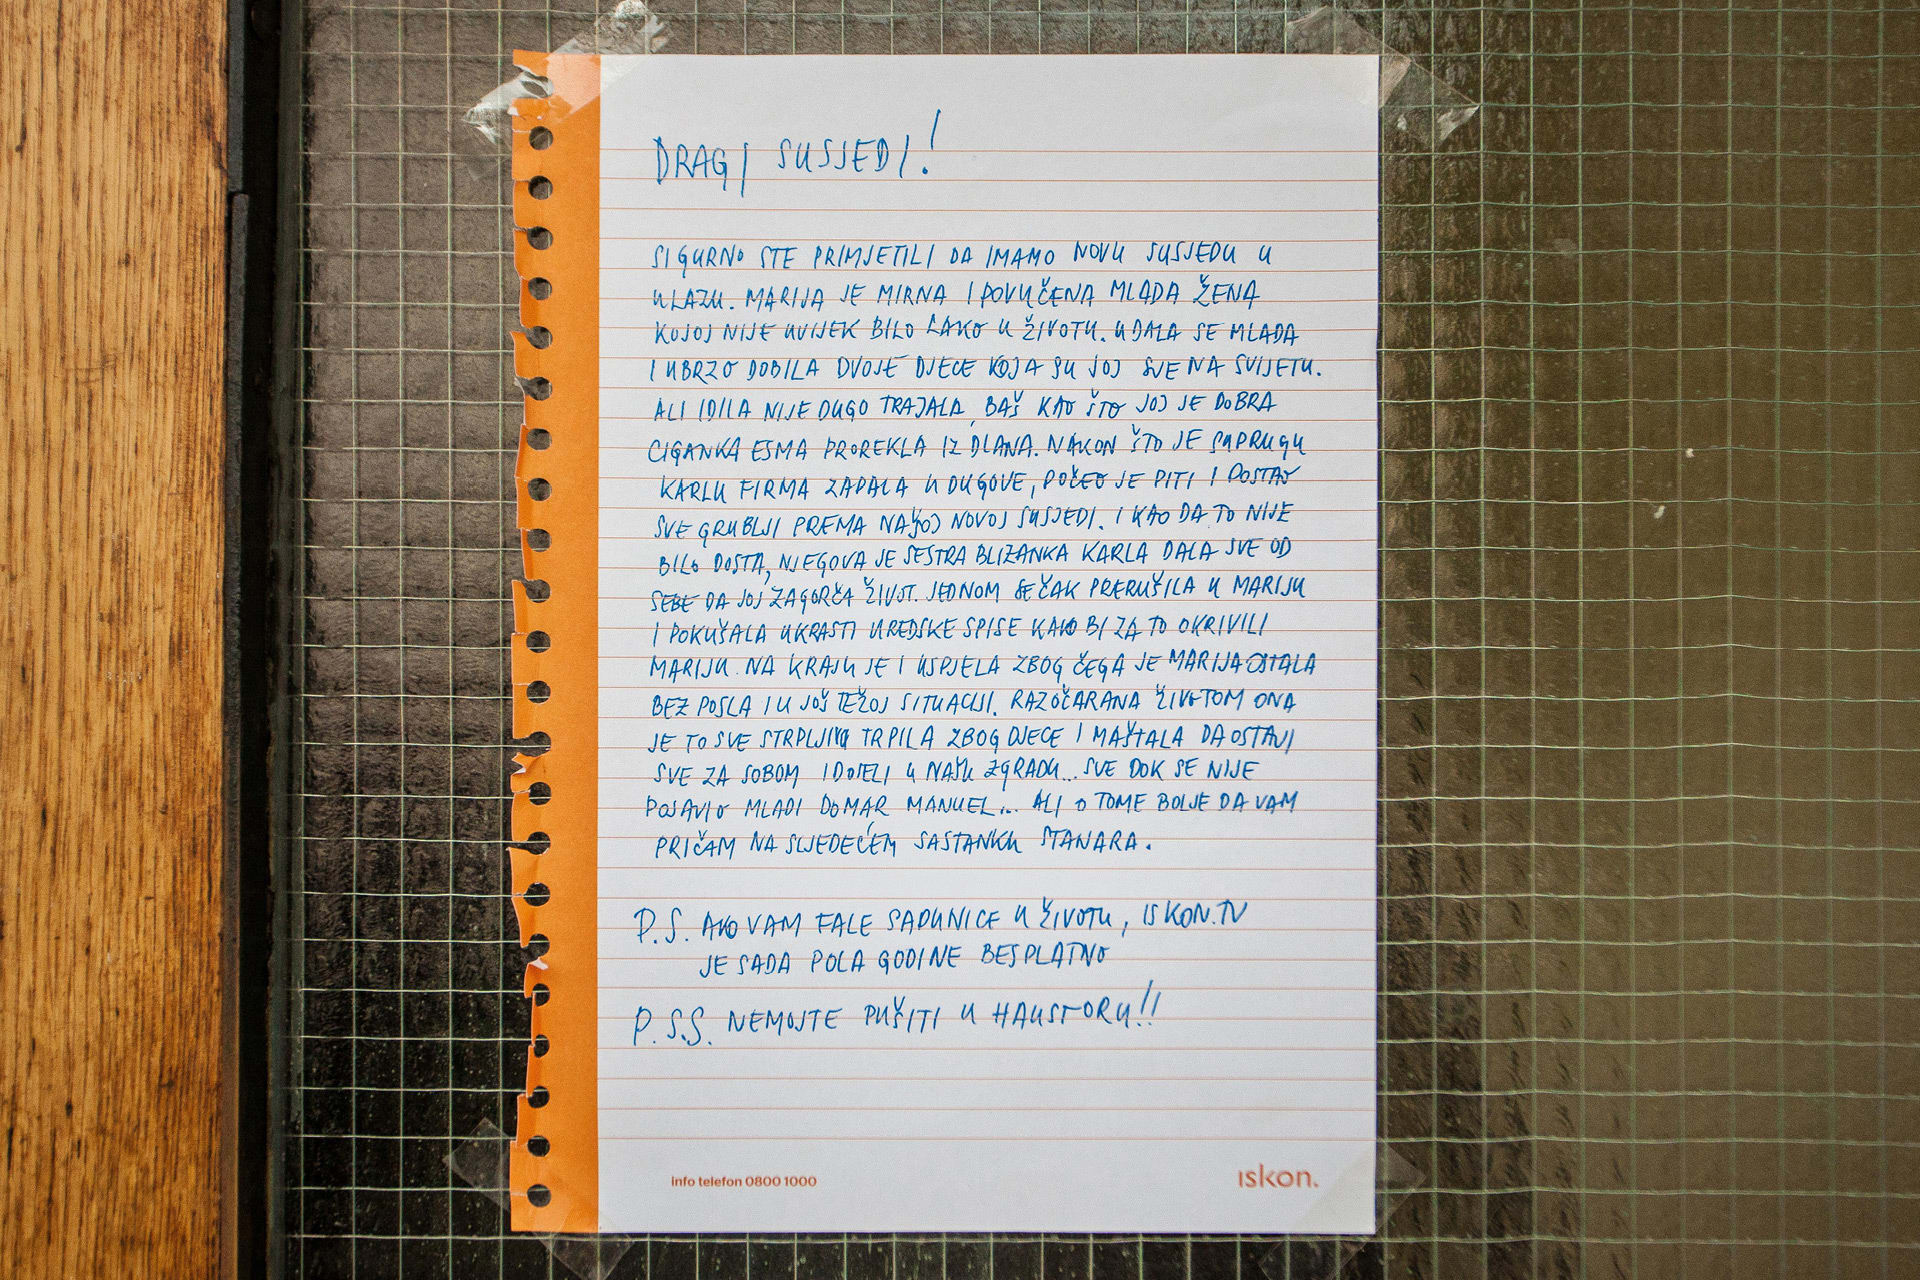 DRAGI SUSJEDI!
SIGURNO STE PRIMJETILI DA IMAMO NOVU SUSJEDU U
ULAZU. MARIJA JE MIRNA I POVUČENA MLADA ŽENA
KOJOJ NIJE UVIJEK BILO LAKO U ŽIVOTU. UDALA SE MLADA
I UBRZO DOBILA DVOJE DJECE KOJA SU JOJ SVE NA SVIJETU.
ALI IDILA NIJE DUGO TRAJALA, BAŠ KAO ŠTO JOJ JE DOBRA
CIGANKA ESMA PROREKLA IZ DLANA. NAKON ŠTO JE SUPRUGU
KARLU FIRMA ZAPALA U DUGOVE, POČEO JE PITI I POSTAO
SVE GRUBLJI PREMA NAŠOJ NOVOJ SUSJEDI. I KAO DA TO NIJE
BILO DOSTA, NJEGOVA JE SESTRA BLIZANKA KARLA DALA SVE OD
SEBE DA JOJ ZAGORČA ŽIVOT. JEDNOM SE ČAK PRERUŠILA U MARIJU
I POKUŠALA UKRASTI UREDSKE SPISE KAKO BI ZA TO OKRIVILI
MARIJU. NA KRAJU JE I USPJELA ZBOG ČEGA JE MARIJA OSTALA
BEZ POSLA I U JOŠ TEŽOJ SITUACIJI. RAZOČARANA ŽIVOTOM ONA
JE TO SVE STRPLJIVO TRPILA ZBOG DJECE I MAŠTALA DA OSTAVI
SVE ZA SOBOM I DOSELI U NAŠU ZGRADU... SVE DOK SE NIJE
POJAVIO MLADI DOMAR MANUEL... ALI O TOME BOLJE DA VAM
PRIČAM NA SLJEDEĆEM SASTANKU STANARA.
P.S. AKO VAM FALE SAPUNICE U ŽIVOTU, ISKON.TV
JE SADA POLA GODINE BESPLATNO
P.S.S. NEMOJTE PUŠITI U HAUSTORU!!
info telefon 0800 1000
iskon.